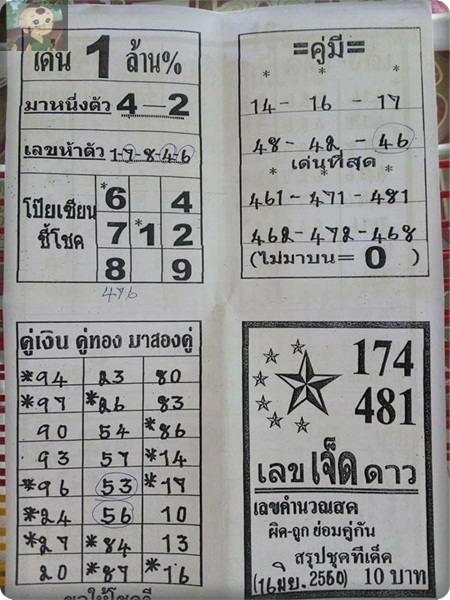 เด่น 1 ล้าน%
มาหนึ่งตัว 4 - 2
เลขห้าตัว 1-7-8-4-6
โป๊ยเซียน
ชี้โชค
*6 4
7 *1 2
8 9
476
=คู่มี=
* * *
14 - 16 - 17
48 - 42 - 46
เด่นที่สุด
* * *
461 - 471 - 481
462 - 472 - 468
(ไม่มาบน = 0 )
คู่เงิน คู่ทอง มาสองคู่
*94 23 80
*97 *26 83
90 54 *86
93 57 *14
*96 53 *17
*24 56 10
*27 *84 13
20 *87 *16
174
481
เลขเจ็ดดาว
เลขคำนวณสด
ผิด-ถูก ย่อมคู่กัน
สรุปชุดทีเด็ด
(16มิย. 2560) 10 บาท